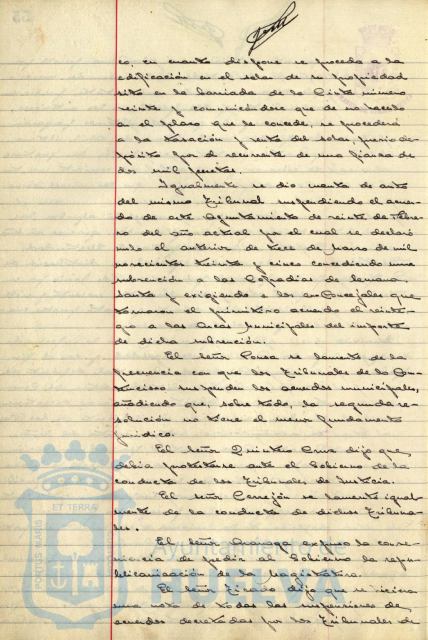 co, en cuanto dispone se proceda a la
edificación en el solar de su propiedad
sito en la barriada de la Cinta número
veinte y comunicándose que de no hacerlo
en el plazo que se concede, se procederá
a la tasación y venta del solar, previo de-
pósito por el recurrente de una fianza de
dos mil pesetas.
Igualmente se dio cuenta de auto
del mismo Tribunal suspendiendo el acuer-
do de este Ayuntamiento de veinte de Febre-
ro del año actual por el cual se declaró
nulo el anterior de trece de Marzo de mil
novecientos treinta y cinco concediendo una
subvención a las Cofradías de Semana
Santa y exigiendo a los exConcejales que
tomaron el primitivo acuerdo el reinte-
gro a las Arcas Municipales del importe
de dicha subvención.
El Señor Ponce se lamenta de la
frecuencia con que los Tribunales de lo Con-
tencioso suspenden los acuerdos municipales,
añadiendo que, sobre todo, la segunda re-
solución no tiene el menor fundamento
jurídico.
El Señor Quintero Cruz dijo que
debía protestarse ante el Gobierno de la
conducta de los Tribunales de Justicia.
El Señor Cerrejón se lamenta igual-
mente de la conducta de dichos Tribuna-
les.
El Señor expuso la conve-
niencia de pedir al Gobierno la repu-
blicanización de la Magistratura.
El Señor Tirado dijo que se hiciera
una nota de todas las suspensiones de
acuerdos decretadas por los Tribunales de
PORTUS MARIS
ET TERRA
Ayuntamiento de
HUELVA